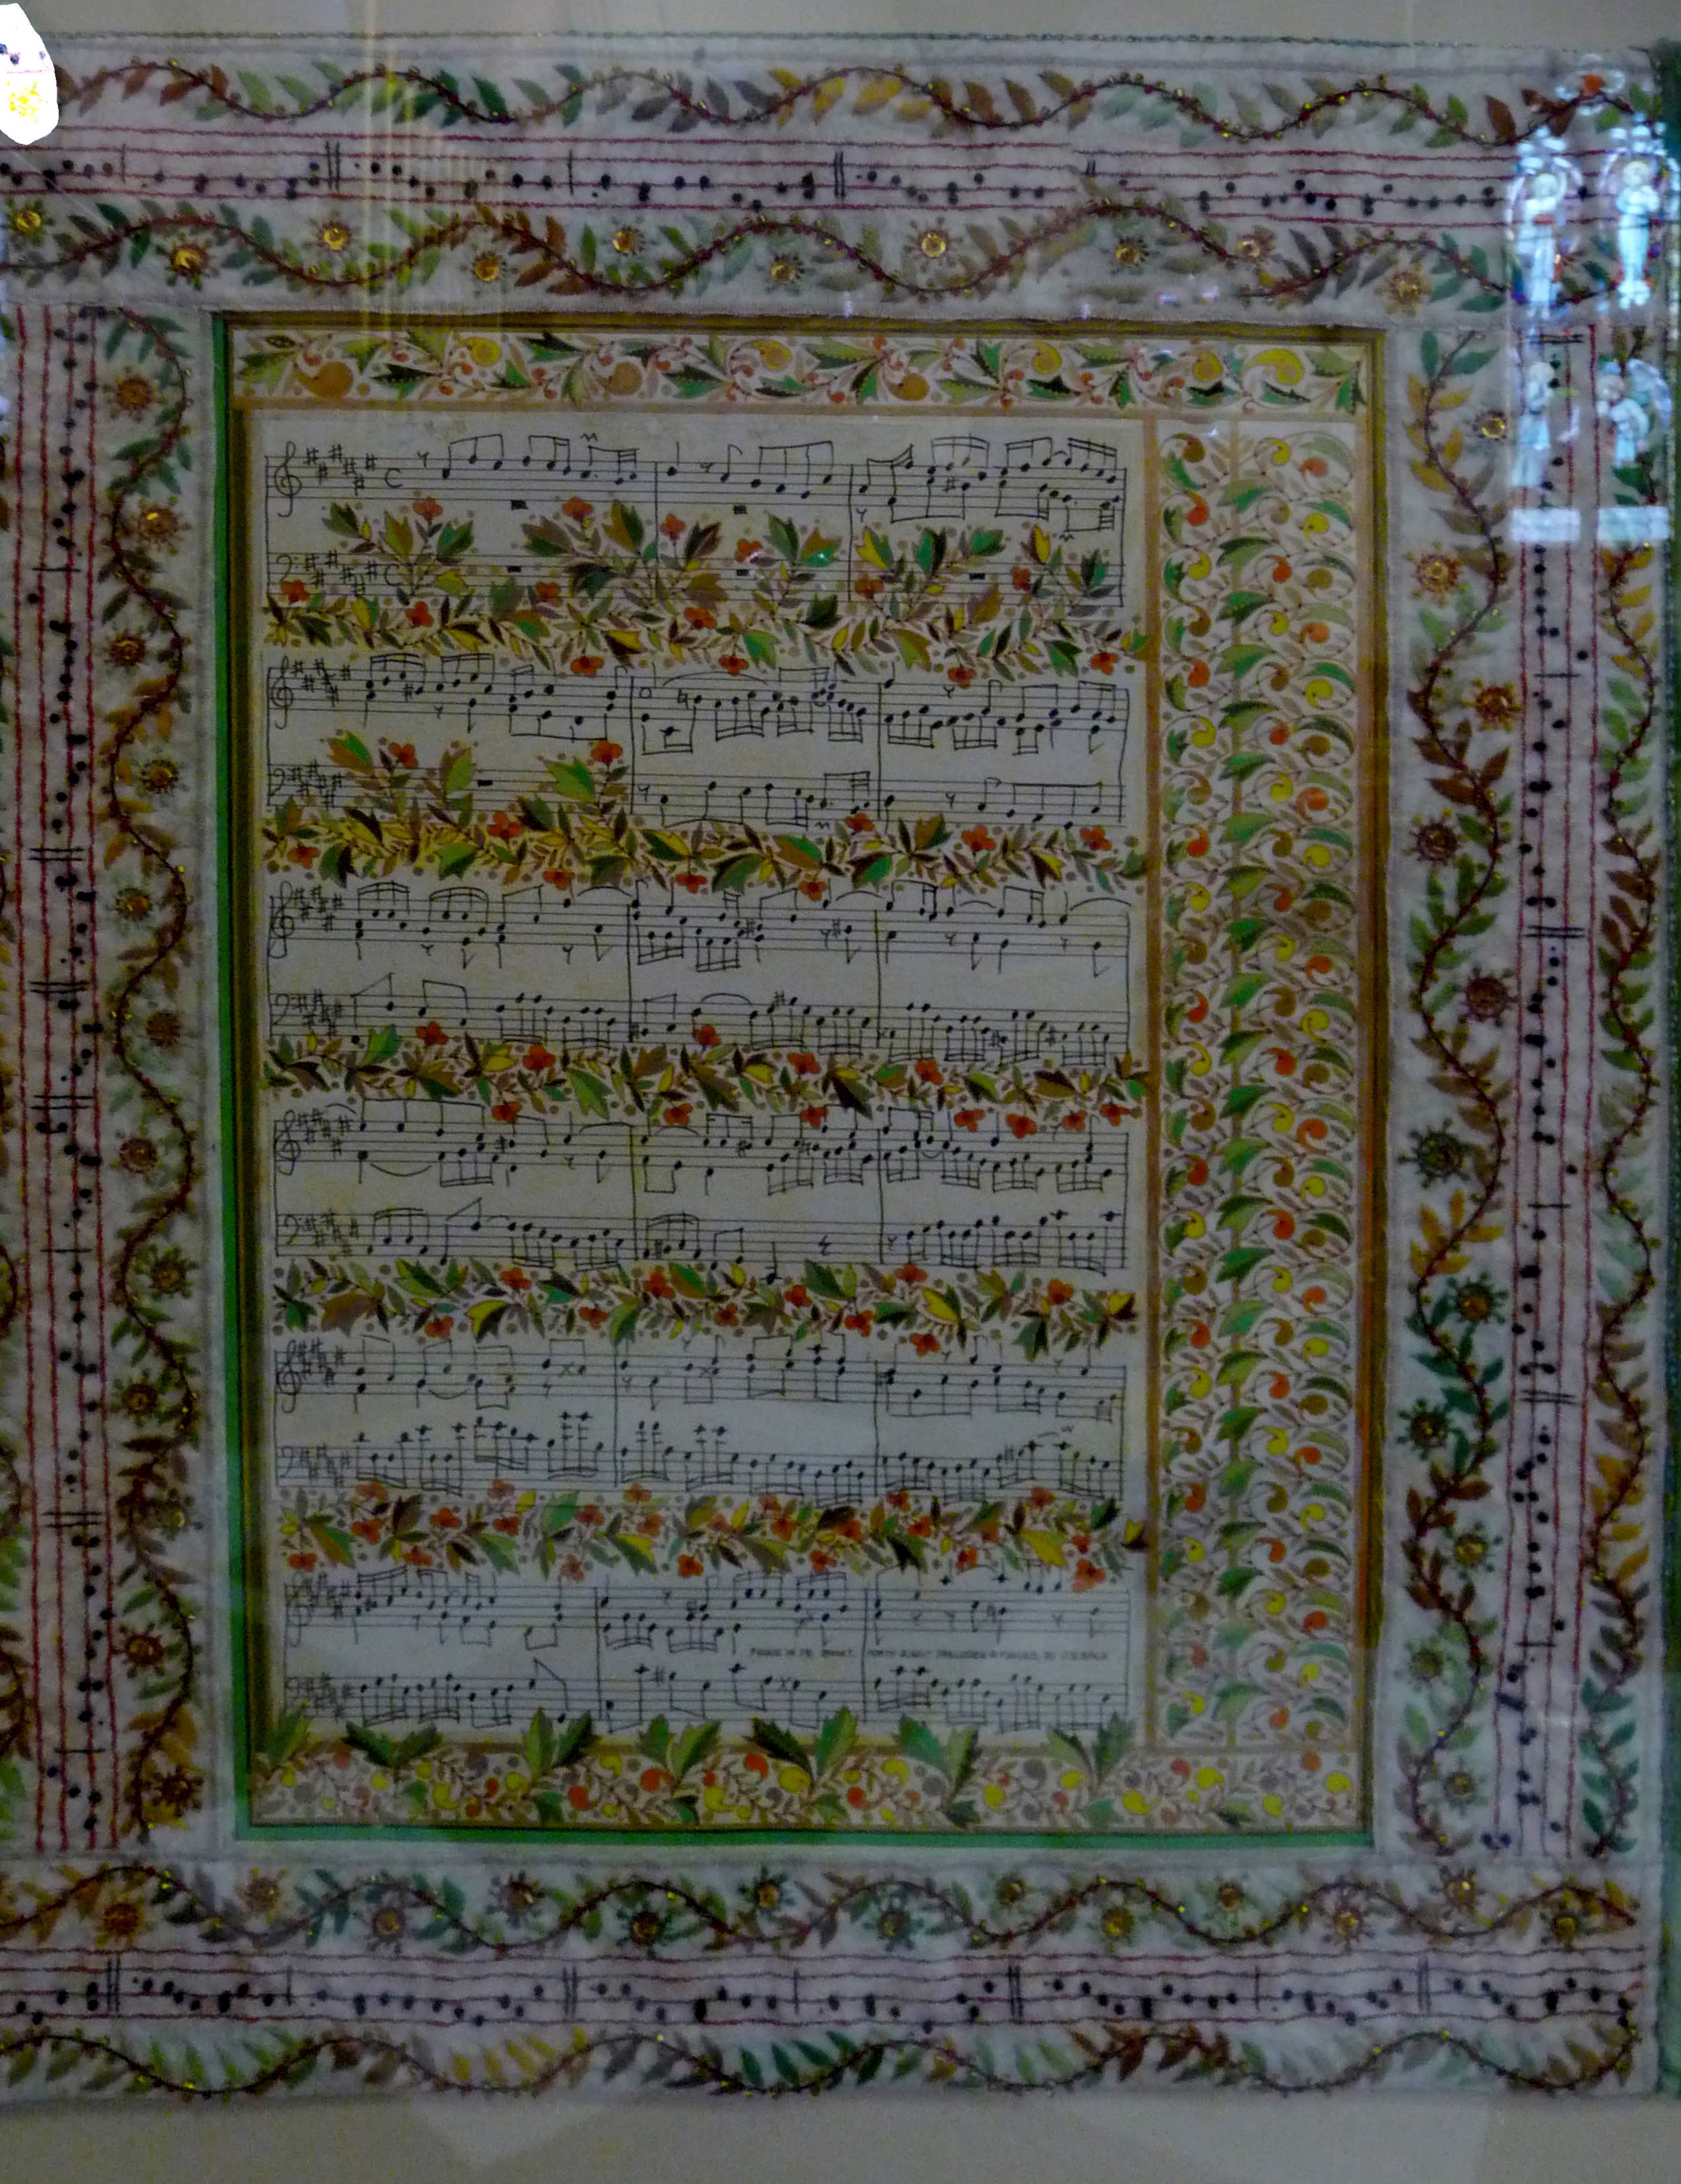 FUGUE IN THE FORTY EIGHT PRELUDES & FUGUES BY J S BACH